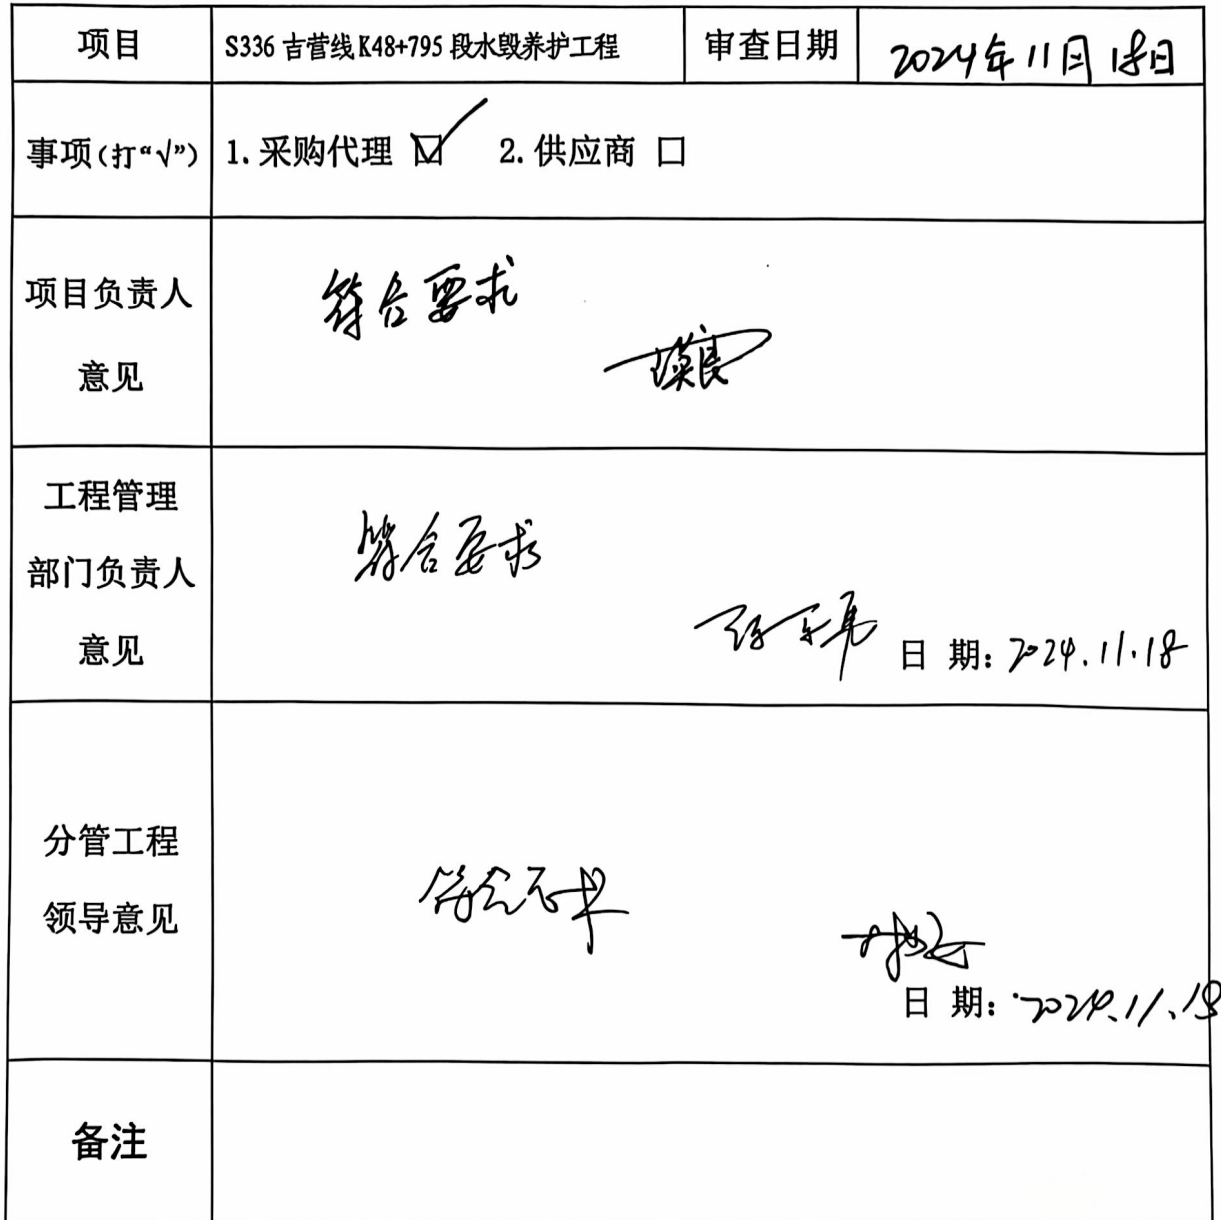 项目 S336 吉营线K48+795 段水毁养护工程 审查日期 2024年11月18日
事项(打“√”) 1. 采购代理 ☑ 2. 供应商 □
项目负责人
意见
符合要求
工程管理
部门负责人
意见
符合要求
日 期: 2024.11.18
分管工程
领导意见
符合要求
日 期: 2024.11.18
备注